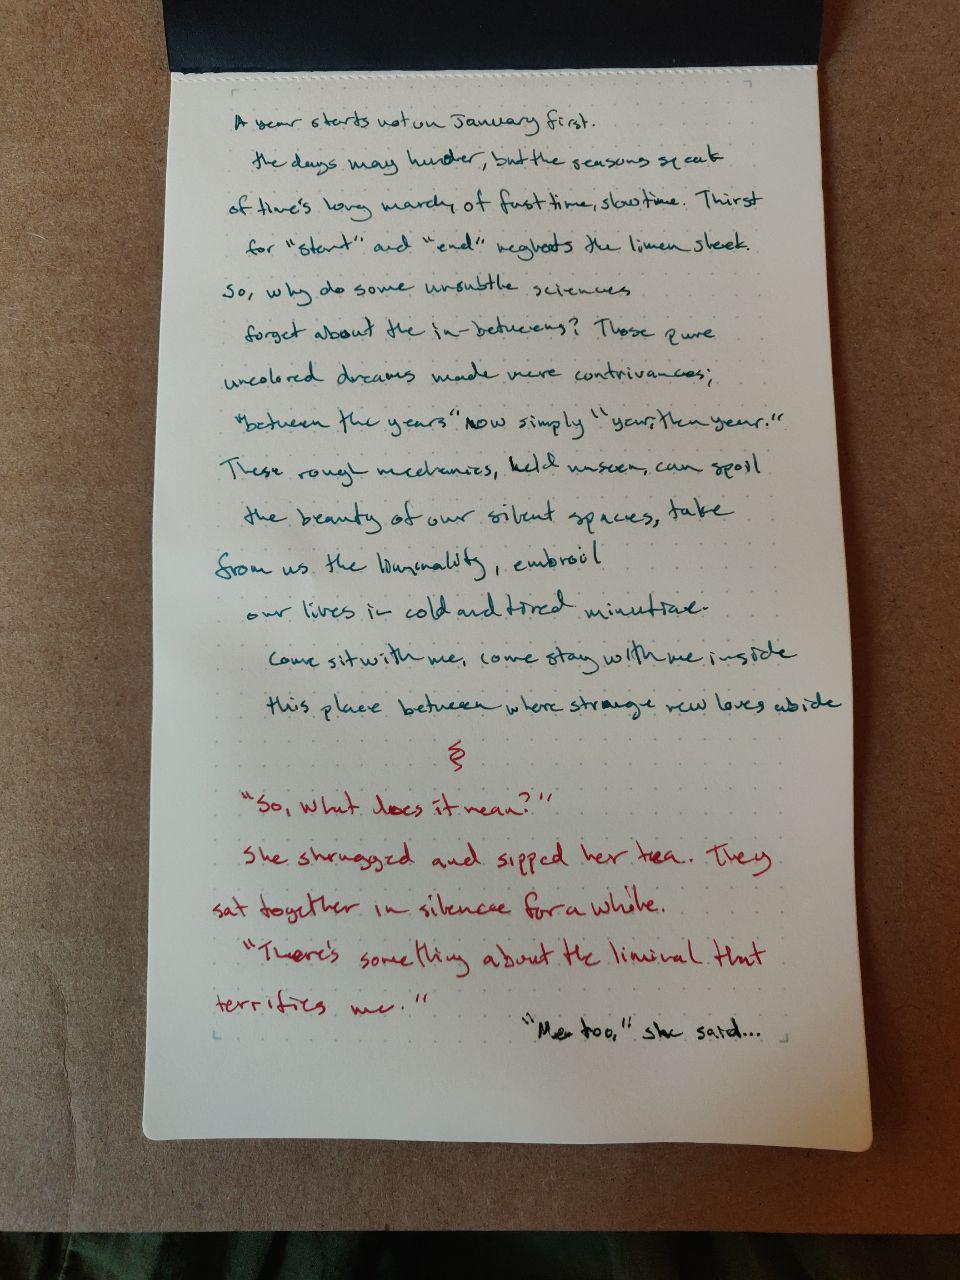 A year starts not on January first.
The days may hunder, but the seasons speak
of time's long march, of fast time, slow time. Thirst
for "start" and "end" neglects the limen sleek.
So, why do some unsubtle sciences
forget about the in-betweens? Those pure
uncolored dreams made mere contrivances;
"between the years" now simply "year, then year."
These rough mechanics, held unseen, can spoil
the beauty of our silent spaces, take
from us the liminality, embroil
our lives in cold and tired minutiae.
Come sit with me, come stay with me inside
this place between where strange new loves abide
"So, what does it mean?"
She shrugged and sipped her tea. They
sat together in silence for a while.
"There's something about the liminal that
terrifies me."
"Me too," she said...